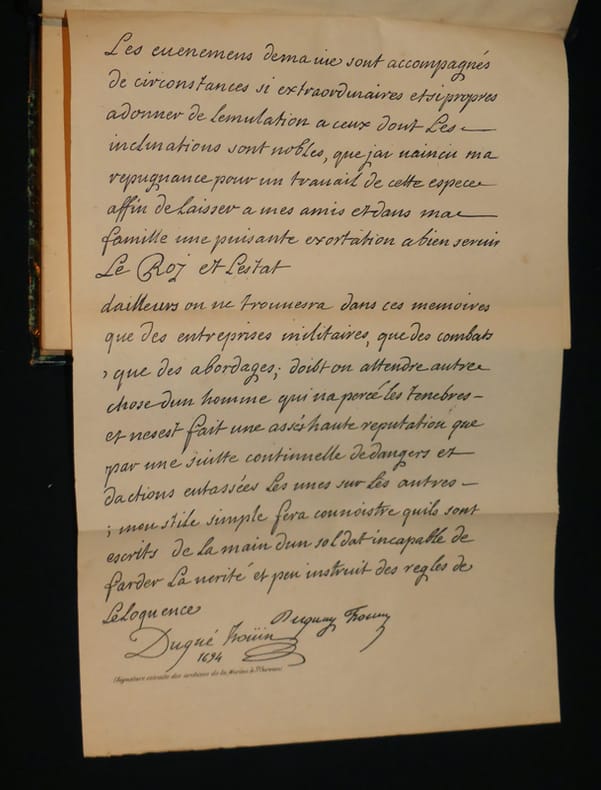 Les euenemens dema uie sont accompagnés
de circonstances si extraordinaires etsi propres
adonner de lemulation a ceux dont Les
inclinations sont nobles, que jay uaincu ma
repugnance pour un trauail de cette espece
affin de laisser a mes amis et dans ma
famille une puisante exortation abien seruir
Le Roj et Lestat
dailleurs on ne trouuesra dans ces memoires
que des entreprises militaires, que des combats
, que des abordages; doibt on attendre autre
chose dun homme qui na percé les tenebres
et nesest fait une assés haute reputation que
par une suitte continuelle dedangers et
dactions entassées Les unes sur Les autres
; mon stile simple fera connoistre quils sont
escrits de la main dun soldat incapable de
farder La uerité et peu instruit des regles de
Léloquence
Duguay Troüin
Dugué Troüin
1694
(Signature extraite des archives de la Marine à